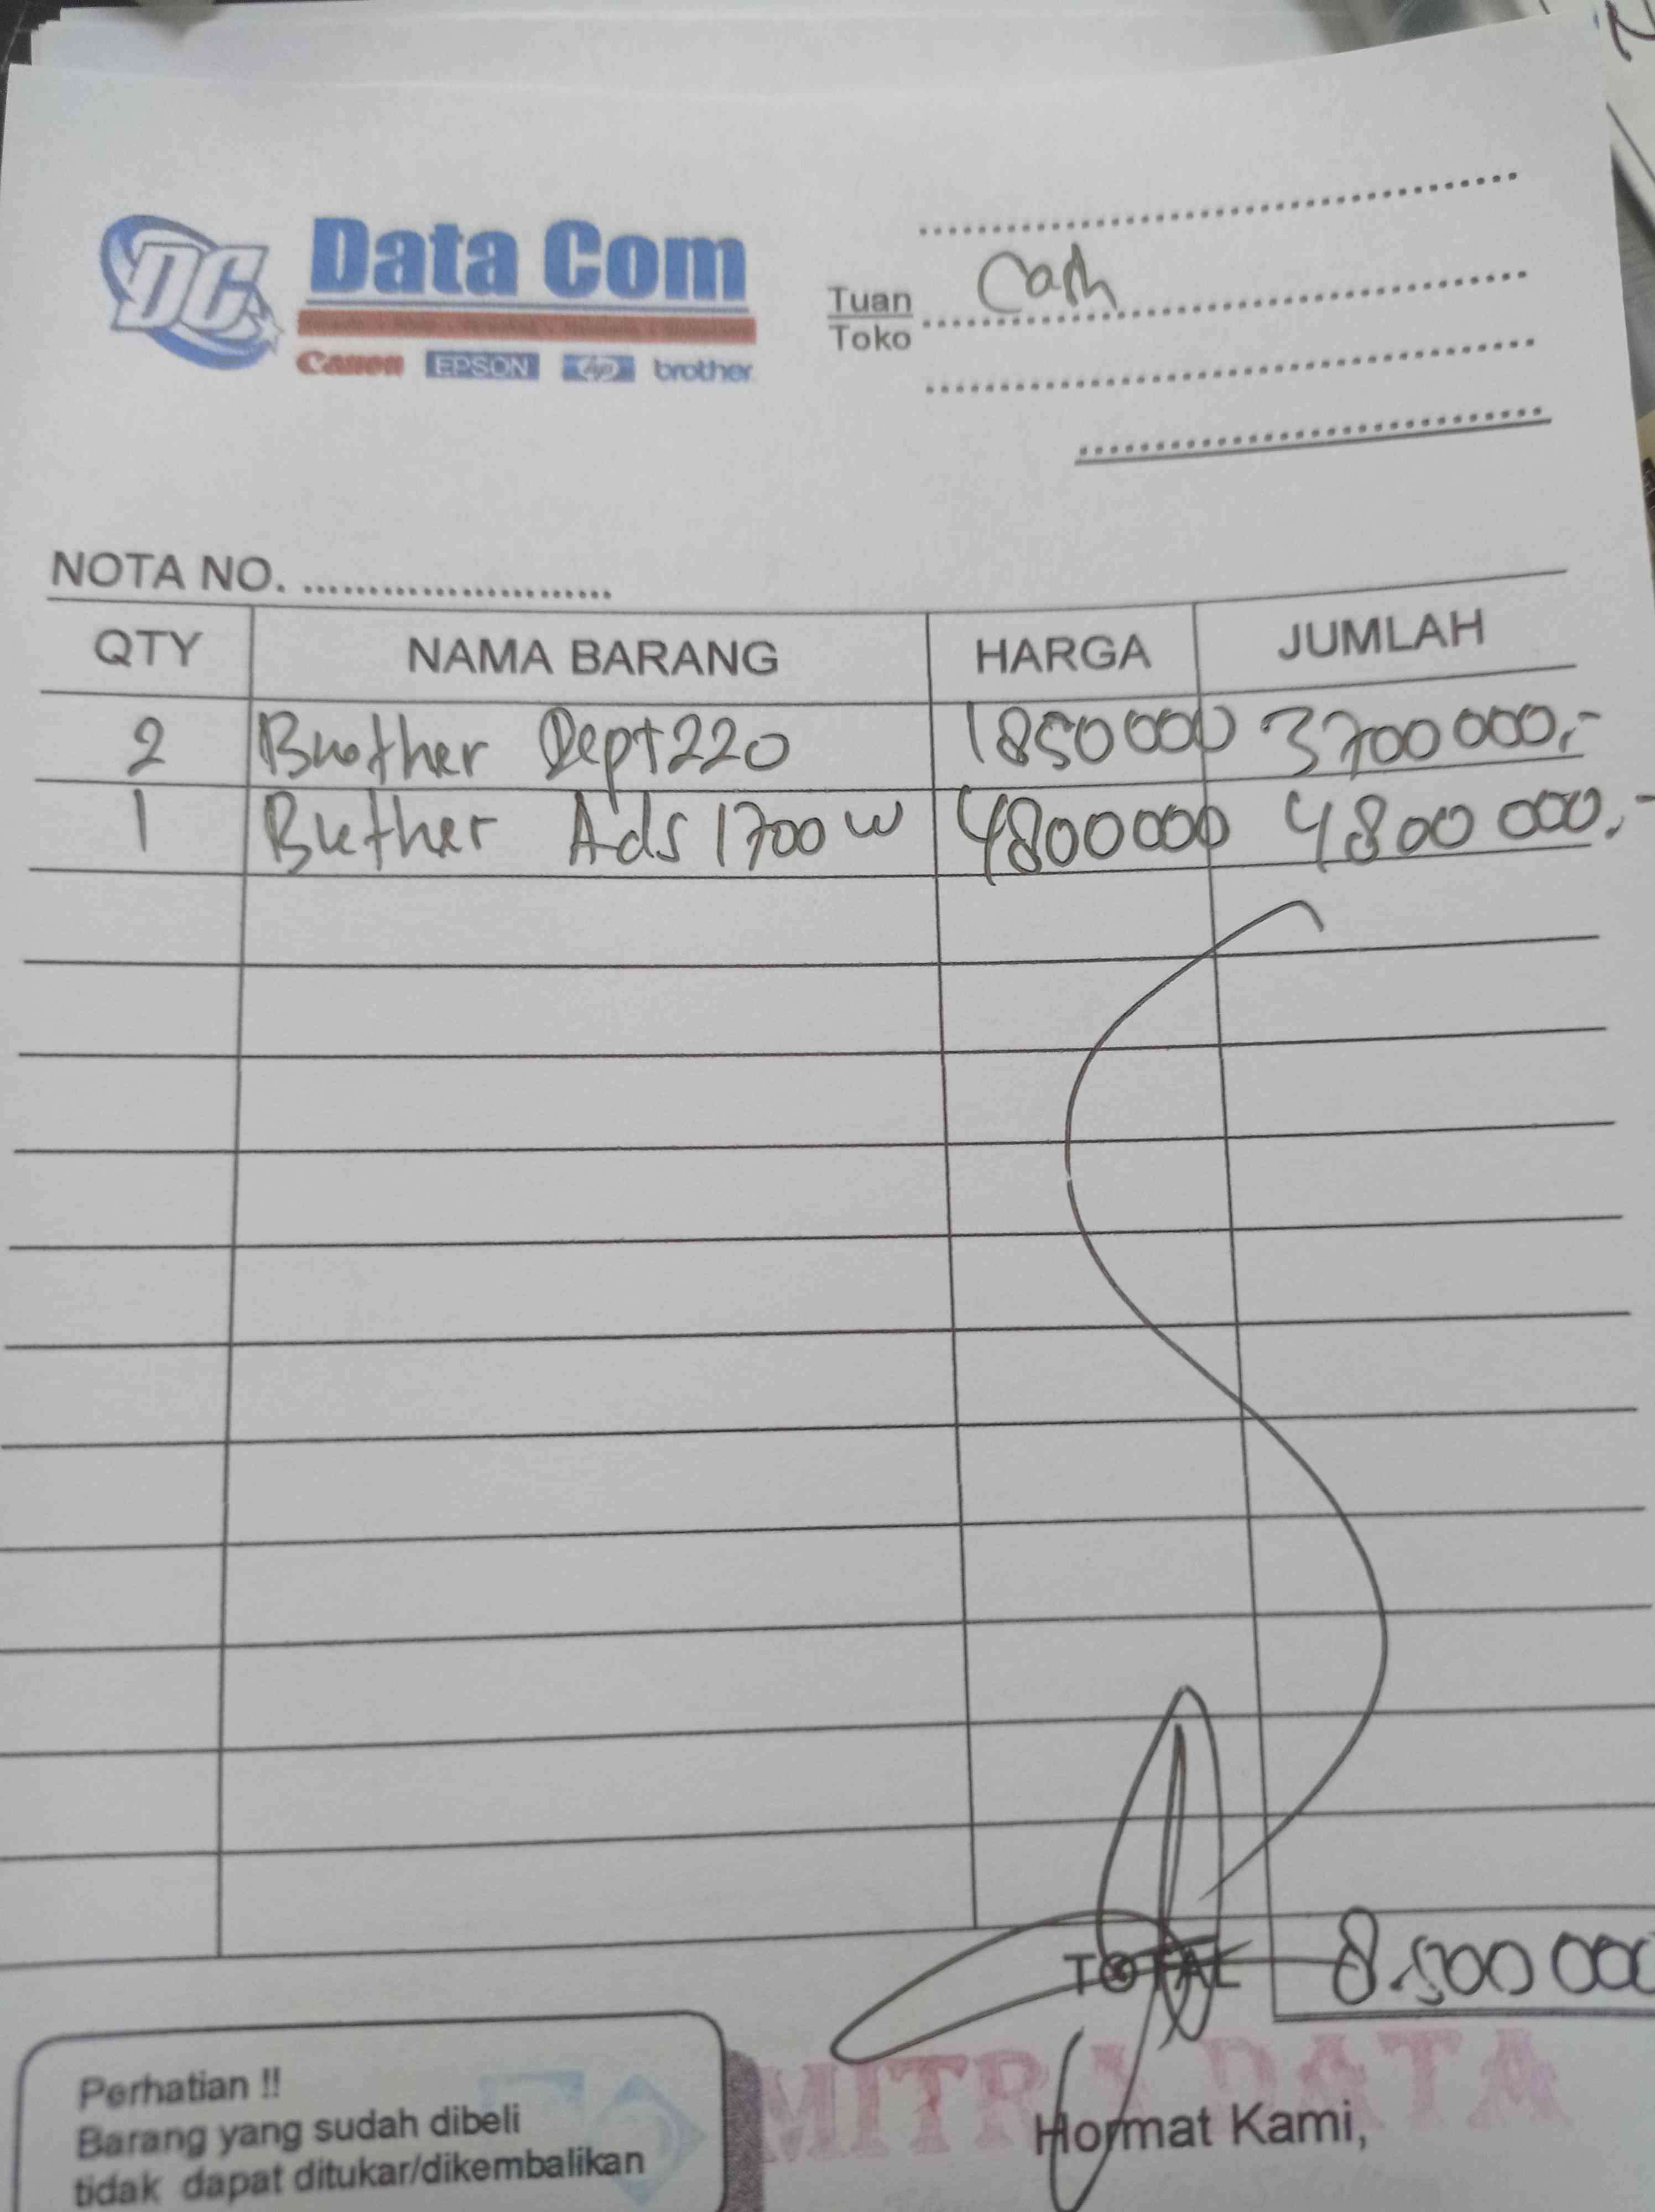 DC
Data Com
Canon EPSON hp brother
Tuan Cash
Toko
NOTA NO.
QTY NAMA BARANG HARGA JUMLAH
2 Brother Dcpt220 1850000 3700000,-
1 Brother Ads 1700 w 4800000 4800 000,-
TOTAL 8.500 000
MITRA DATA
Perhatian !!
Barang yang sudah dibeli
tidak dapat ditukar/dikembalikan
Hormat Kami,